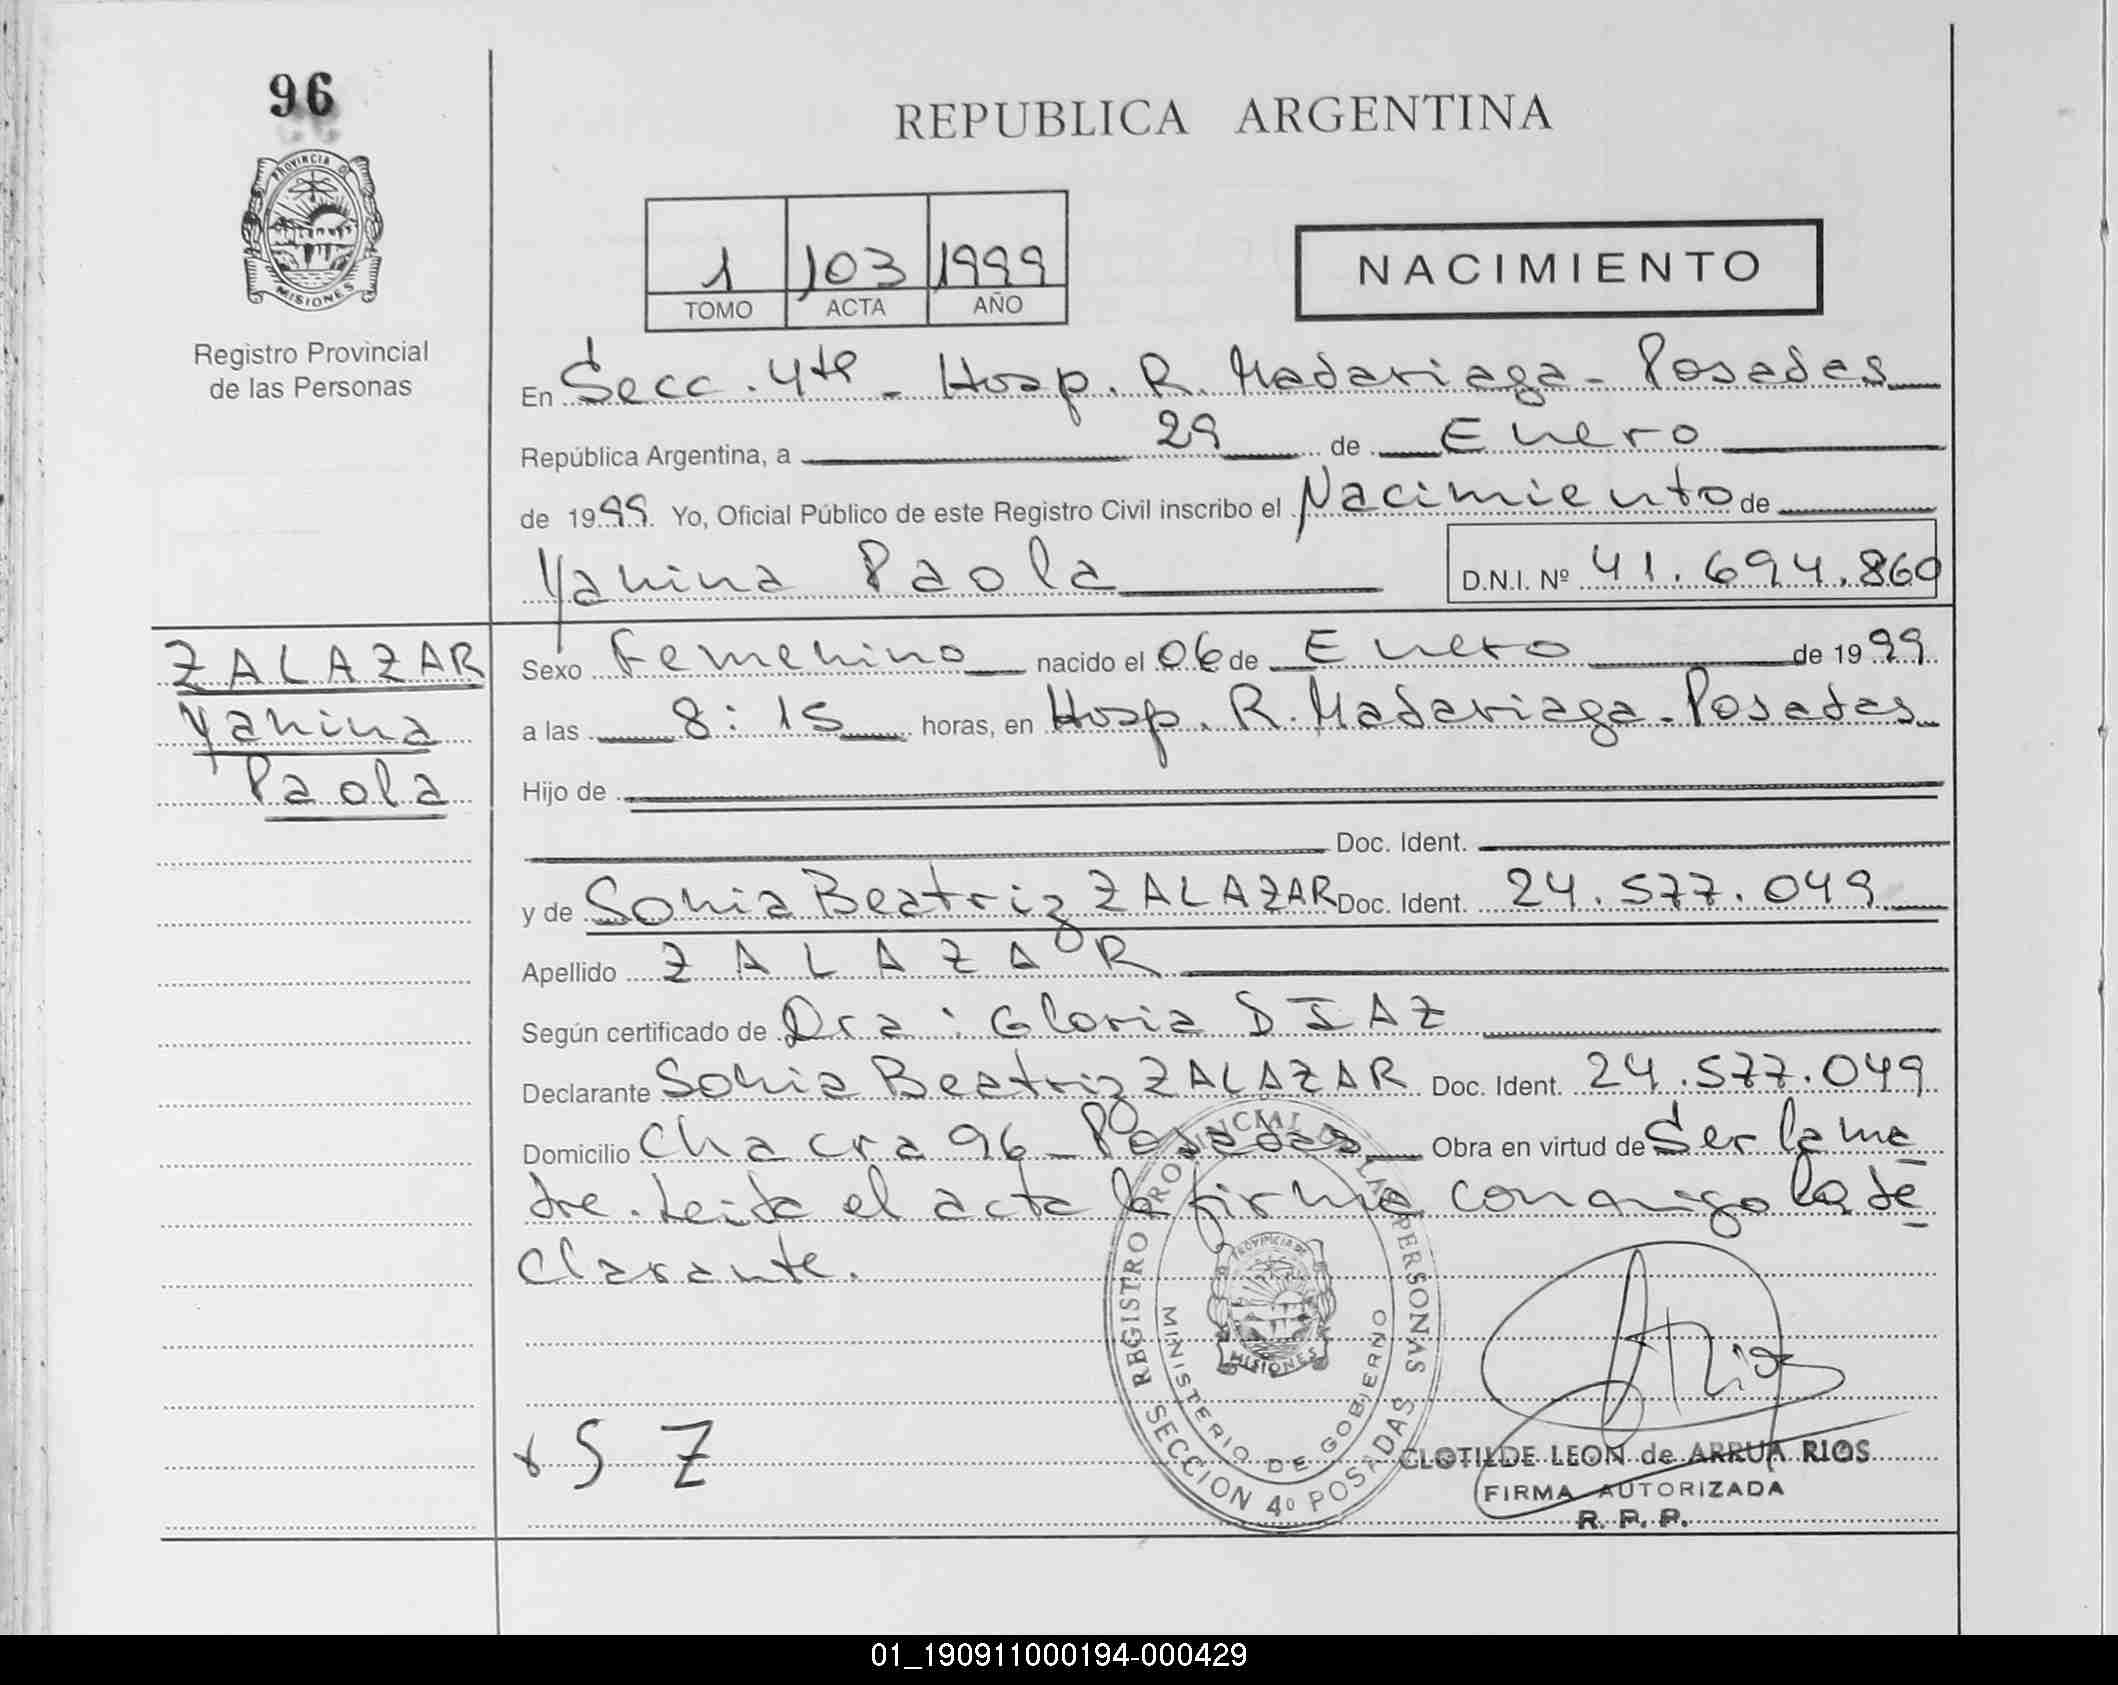 96
PROVINCIA DE
MISIONES
Registro Provincial
de las Personas
REPUBLICA ARGENTINA
1 103 1999
TOMO ACTA AÑO
NACIMIENTO
En Secc. 4ta - Hosp. R. Madariaga - Posadas
República Argentina, a 29 de Enero
de 1999. Yo, Oficial Público de este Registro Civil inscribo el Nacimiento de
Yanina Paola D.N.I. Nº 41.694.860
ZALAZAR
Yanina
Paola
Sexo Femenino nacido el 06 de Enero de 1999
a las 8:15 horas, en Hosp. R. Madariaga - Posadas
Hijo de
Doc. Ident.
y de Sonia Beatriz ZALAZAR Doc. Ident. 24.577.049
Apellido ZALAZAR
Según certificado de Dra: Gloria DIAZ
Declarante Sonia Beatriz ZALAZAR Doc. Ident. 24.577.049
Domicilio Chacra 96 - Posadas Obra en virtud de Ser la ma
dre. Leída el acta la firma conmigo la de
clarante.
REGISTRO PROVINCIAL DE LAS PERSONAS
MINISTERIO DE GOBIERNO
PROVINCIA DE
MISIONES
SECCION 4º POSADAS
x S Z
ARios
CLOTILDE LEON de ARRUA RIOS
FIRMA AUTORIZADA
R. P. P.
01_190911000194-000429